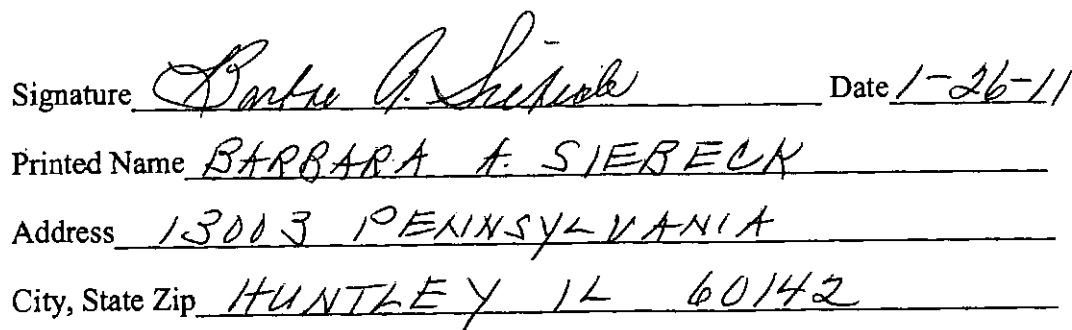 Signature Barbara A. Siebeck Date 1-26-11
Printed Name BARBARA A. SIEBECK
Address 13003 PENNSYLVANIA
City, State Zip HUNTLEY IL 60142